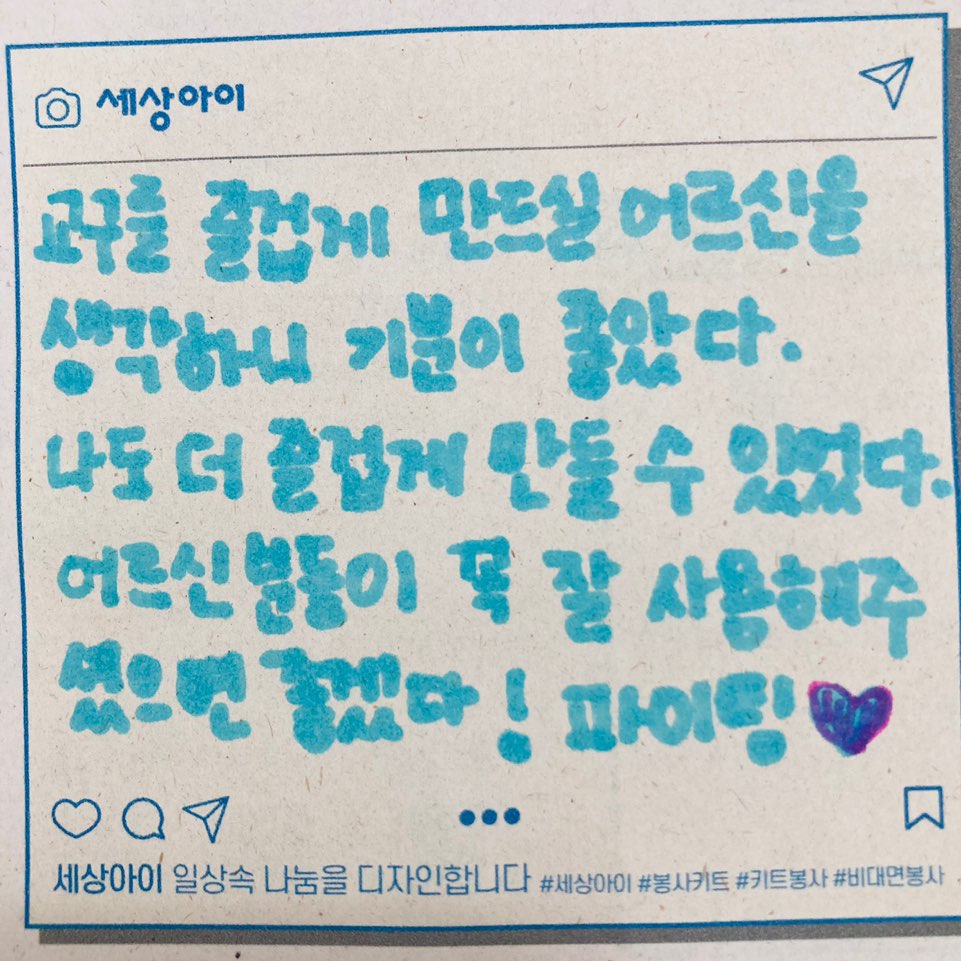 세상아이
교구를 즐겁게 만드실 어르신을
생각하니 기분이 좋았다.
나도 더 즐겁게 만들 수 있었다.
어르신분들이 꼭 잘 사용해주
셨으면 좋겠다! 파이팅
세상아이 일상속 나눔을 디자인합니다 #세상아이 #봉사키트 #키트봉사 #비대면봉사